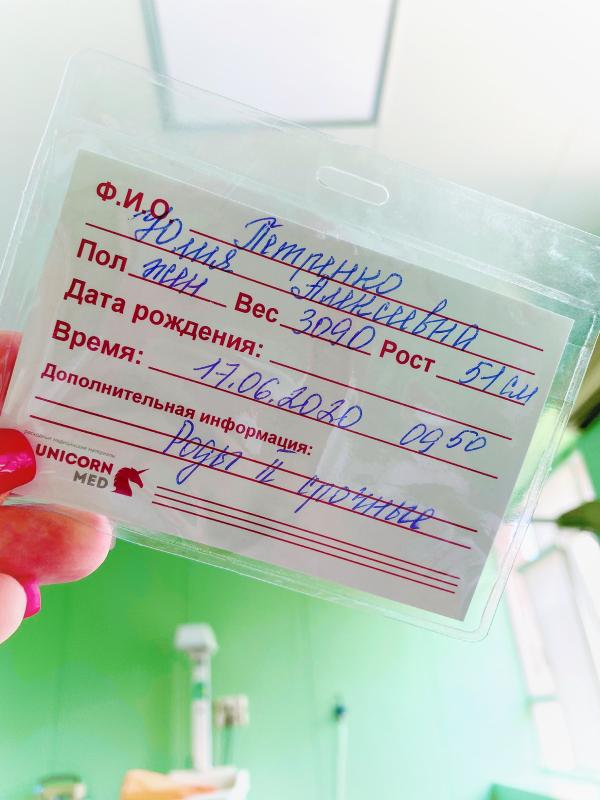 Ф.И.О. Петренко
Юлия Алексеевна
Пол жен Вес 3090 Рост 51 см
Дата рождения:
Время: 17.06.2020 09 50
Дополнительная информация:
Роды II срочные
расходные медицинские материалы
UNICORN
MED